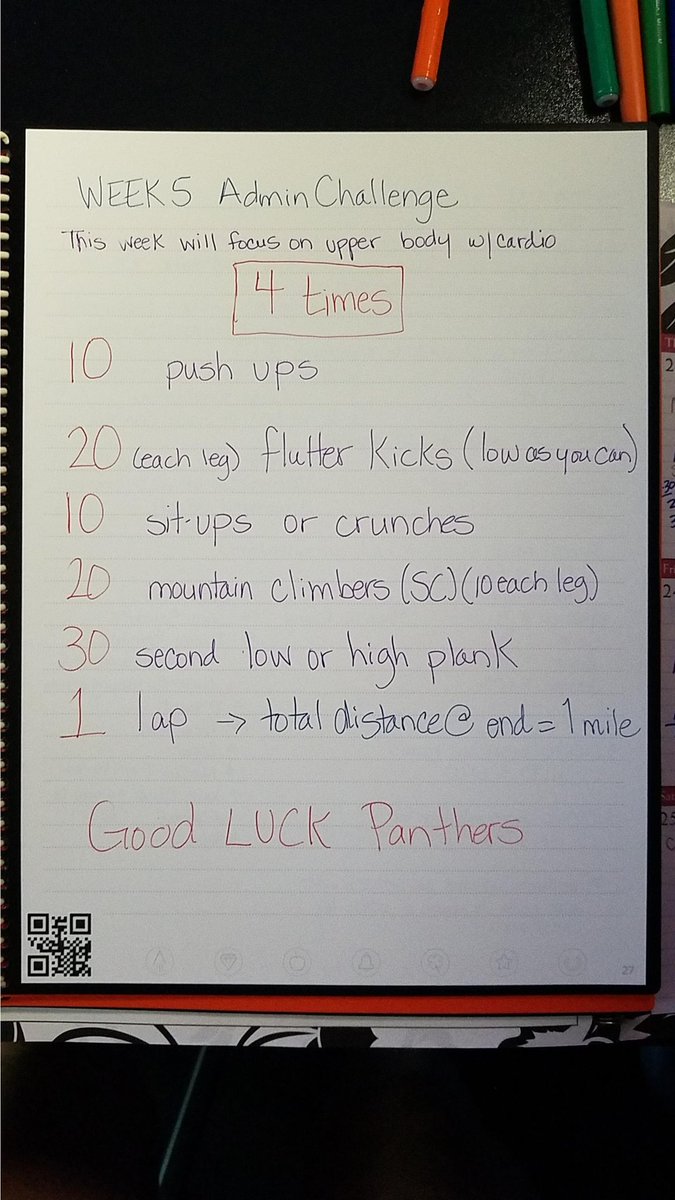 WEEK 5 Admin Challenge
This week will focus on upper body w/cardio
4 times
10 push ups
20 (each leg) flutter kicks (low as you can)
10 sit-ups or crunches
20 mountain climbers (SC) (10 each leg)
30 second low or high plank
1 lap → total distance @ end = 1 mile
Good LUCK Panthers
27